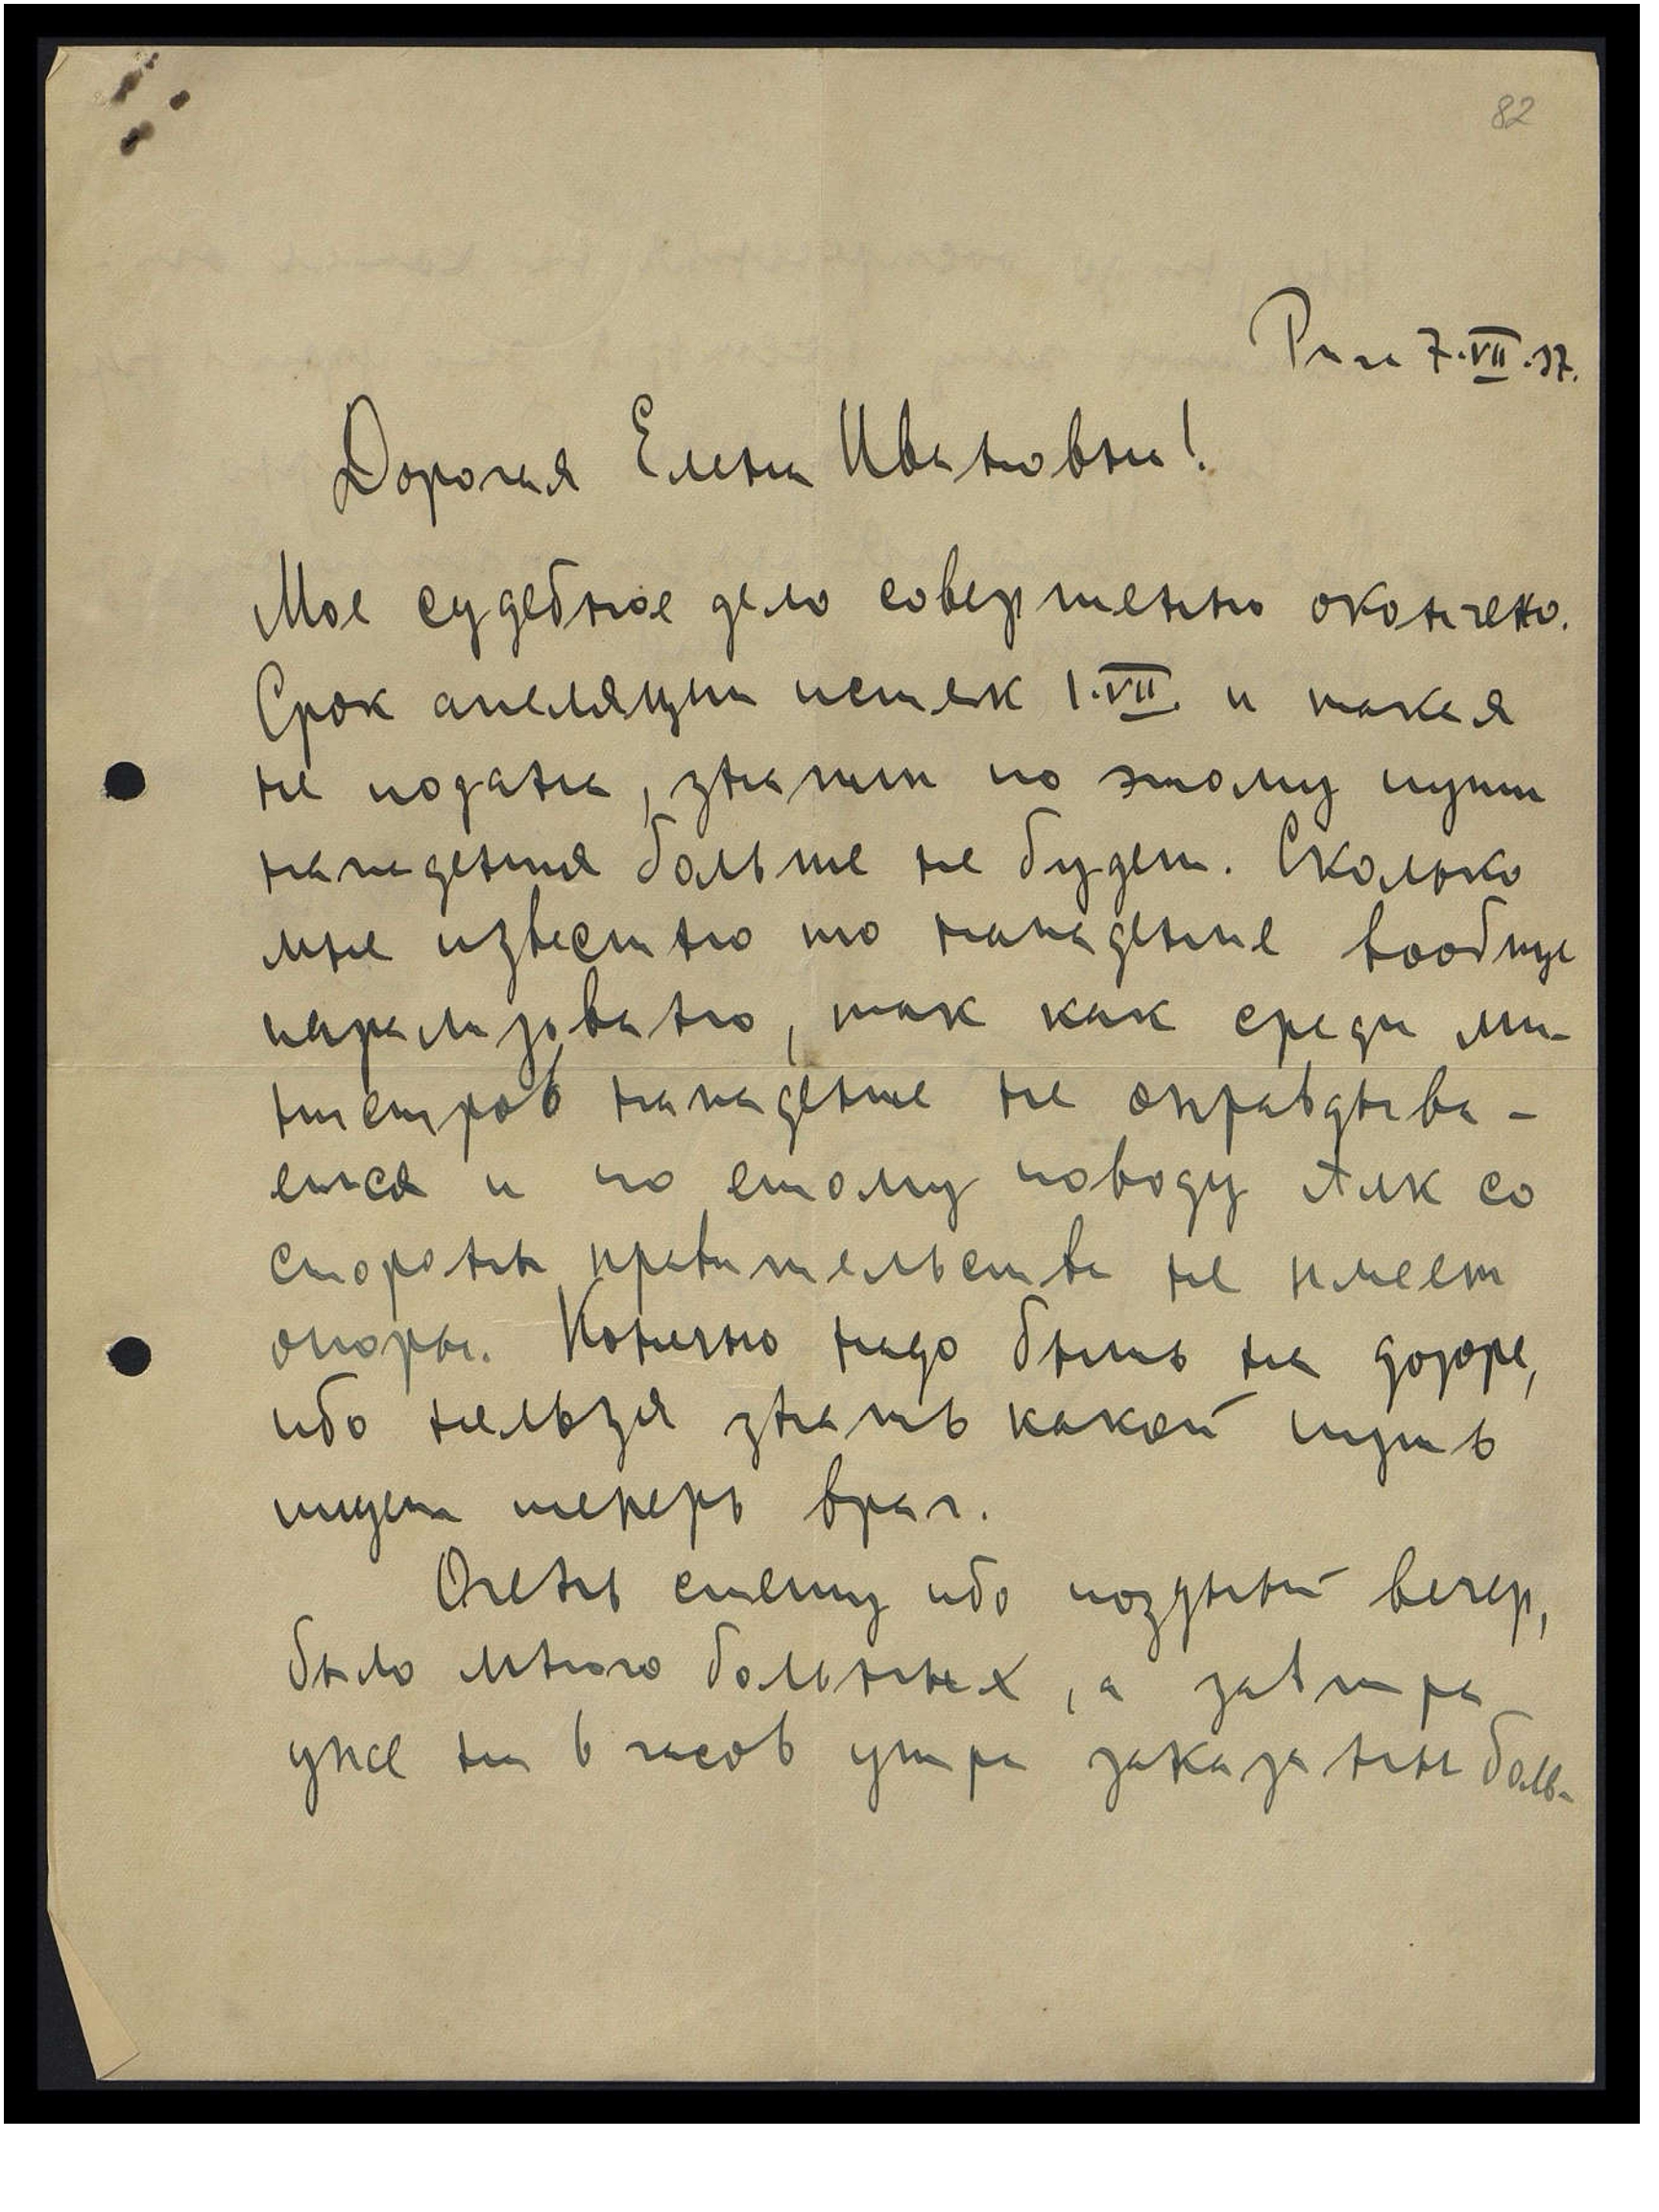 82
Рига 7.VII.37.
Дорогая Елена Ивановна!
Мое судебное дело совершенно окончено.
Срок апеляции истек 1.VII. и такая
не подана, значит по этому пункт
нападения больше не будет. Сколько
мне известно то нападение вообще
парализовано, так как среди ми-
нистров нападение не оправдыва-
ется и по етому поводу Алк со
стороны правительства не имеет
опоры. Конечно надо быть на дозоре,
ибо нельзя знать какой путь
ищет теперь враг.
Очень спешу ибо поздный вечер,
было много больных, а завтра
уже на 6 часов утра заказаны боль-